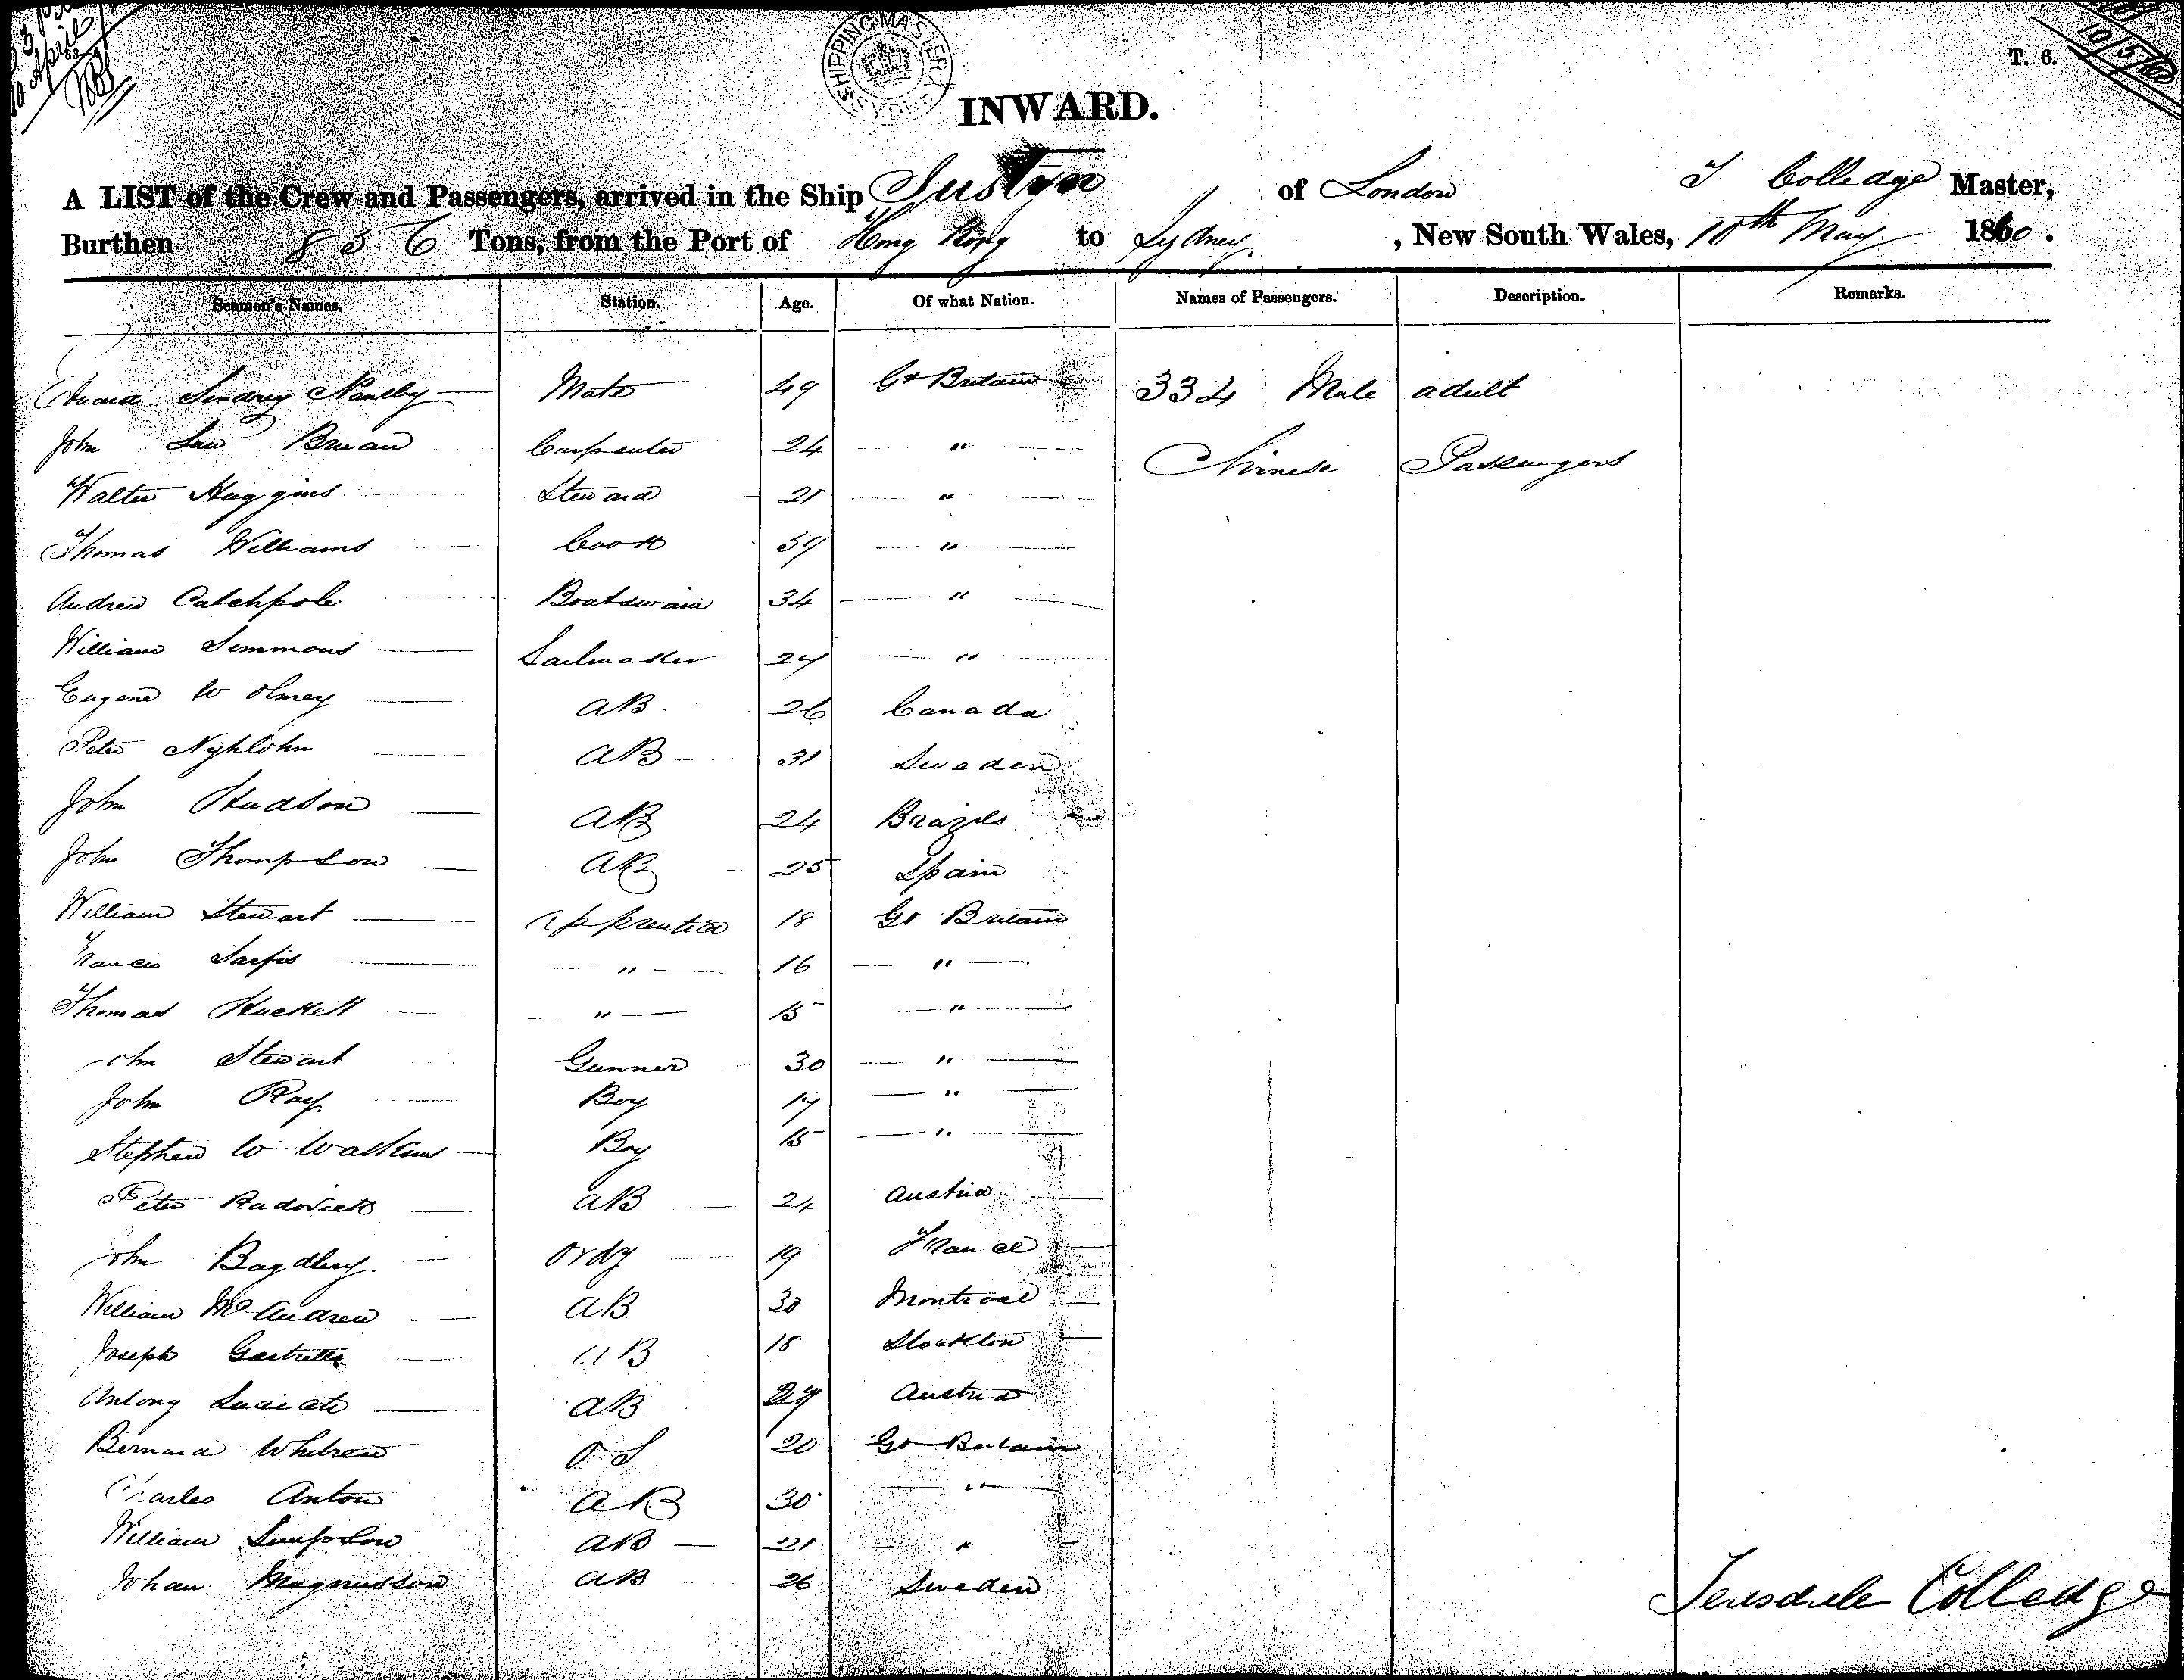 10 April
SHIPPING MASTER
10/5/60
T. 6.
INWARD.
A LIST of the Crew and Passengers, arrived in the Ship of London T Colledge Master,
Burthen 856 Tons, from the Port of Hong Kong to Sydney, New South Wales, 10th May 1860.
Seamen's Names. Station. Age. Of what Nation. Names of Passengers. Description. Remarks.
Mate 49 Gt Britain 334 Male adult
John Law Carpenter 24 " Chinese Passengers
Walter Huggins Steward 21 "
Thomas Williams Cook "
Andrew Catchpole Boatswain 34 "
William Simmons Sailmaker 27 "
Eugene W Olmey AB 26 Canada
Peter AB 31 Sweden
John Hudson AB 24 Brazils
John Thompson AB 25 Spain
William Stewart Apprentice 18 Gt Britain
Francis " 16 "
Thomas Huckell " 15 "
John Stewart Gunner 30 "
John Ray Boy 17 "
Stephen W Watkins Boy 15 "
Peter Radovich AB 24 Austria
John Ordy 19 France
William McAndrew AB 30 Montreal
Joseph AB 18 Stockton
Antony AB 27 Austria
Bernard O S 20 Gt Britain
Charles Anton AB 30 "
William Simpson AB 21 "
Johan Magnusson AB 26 Sweden
Colledge